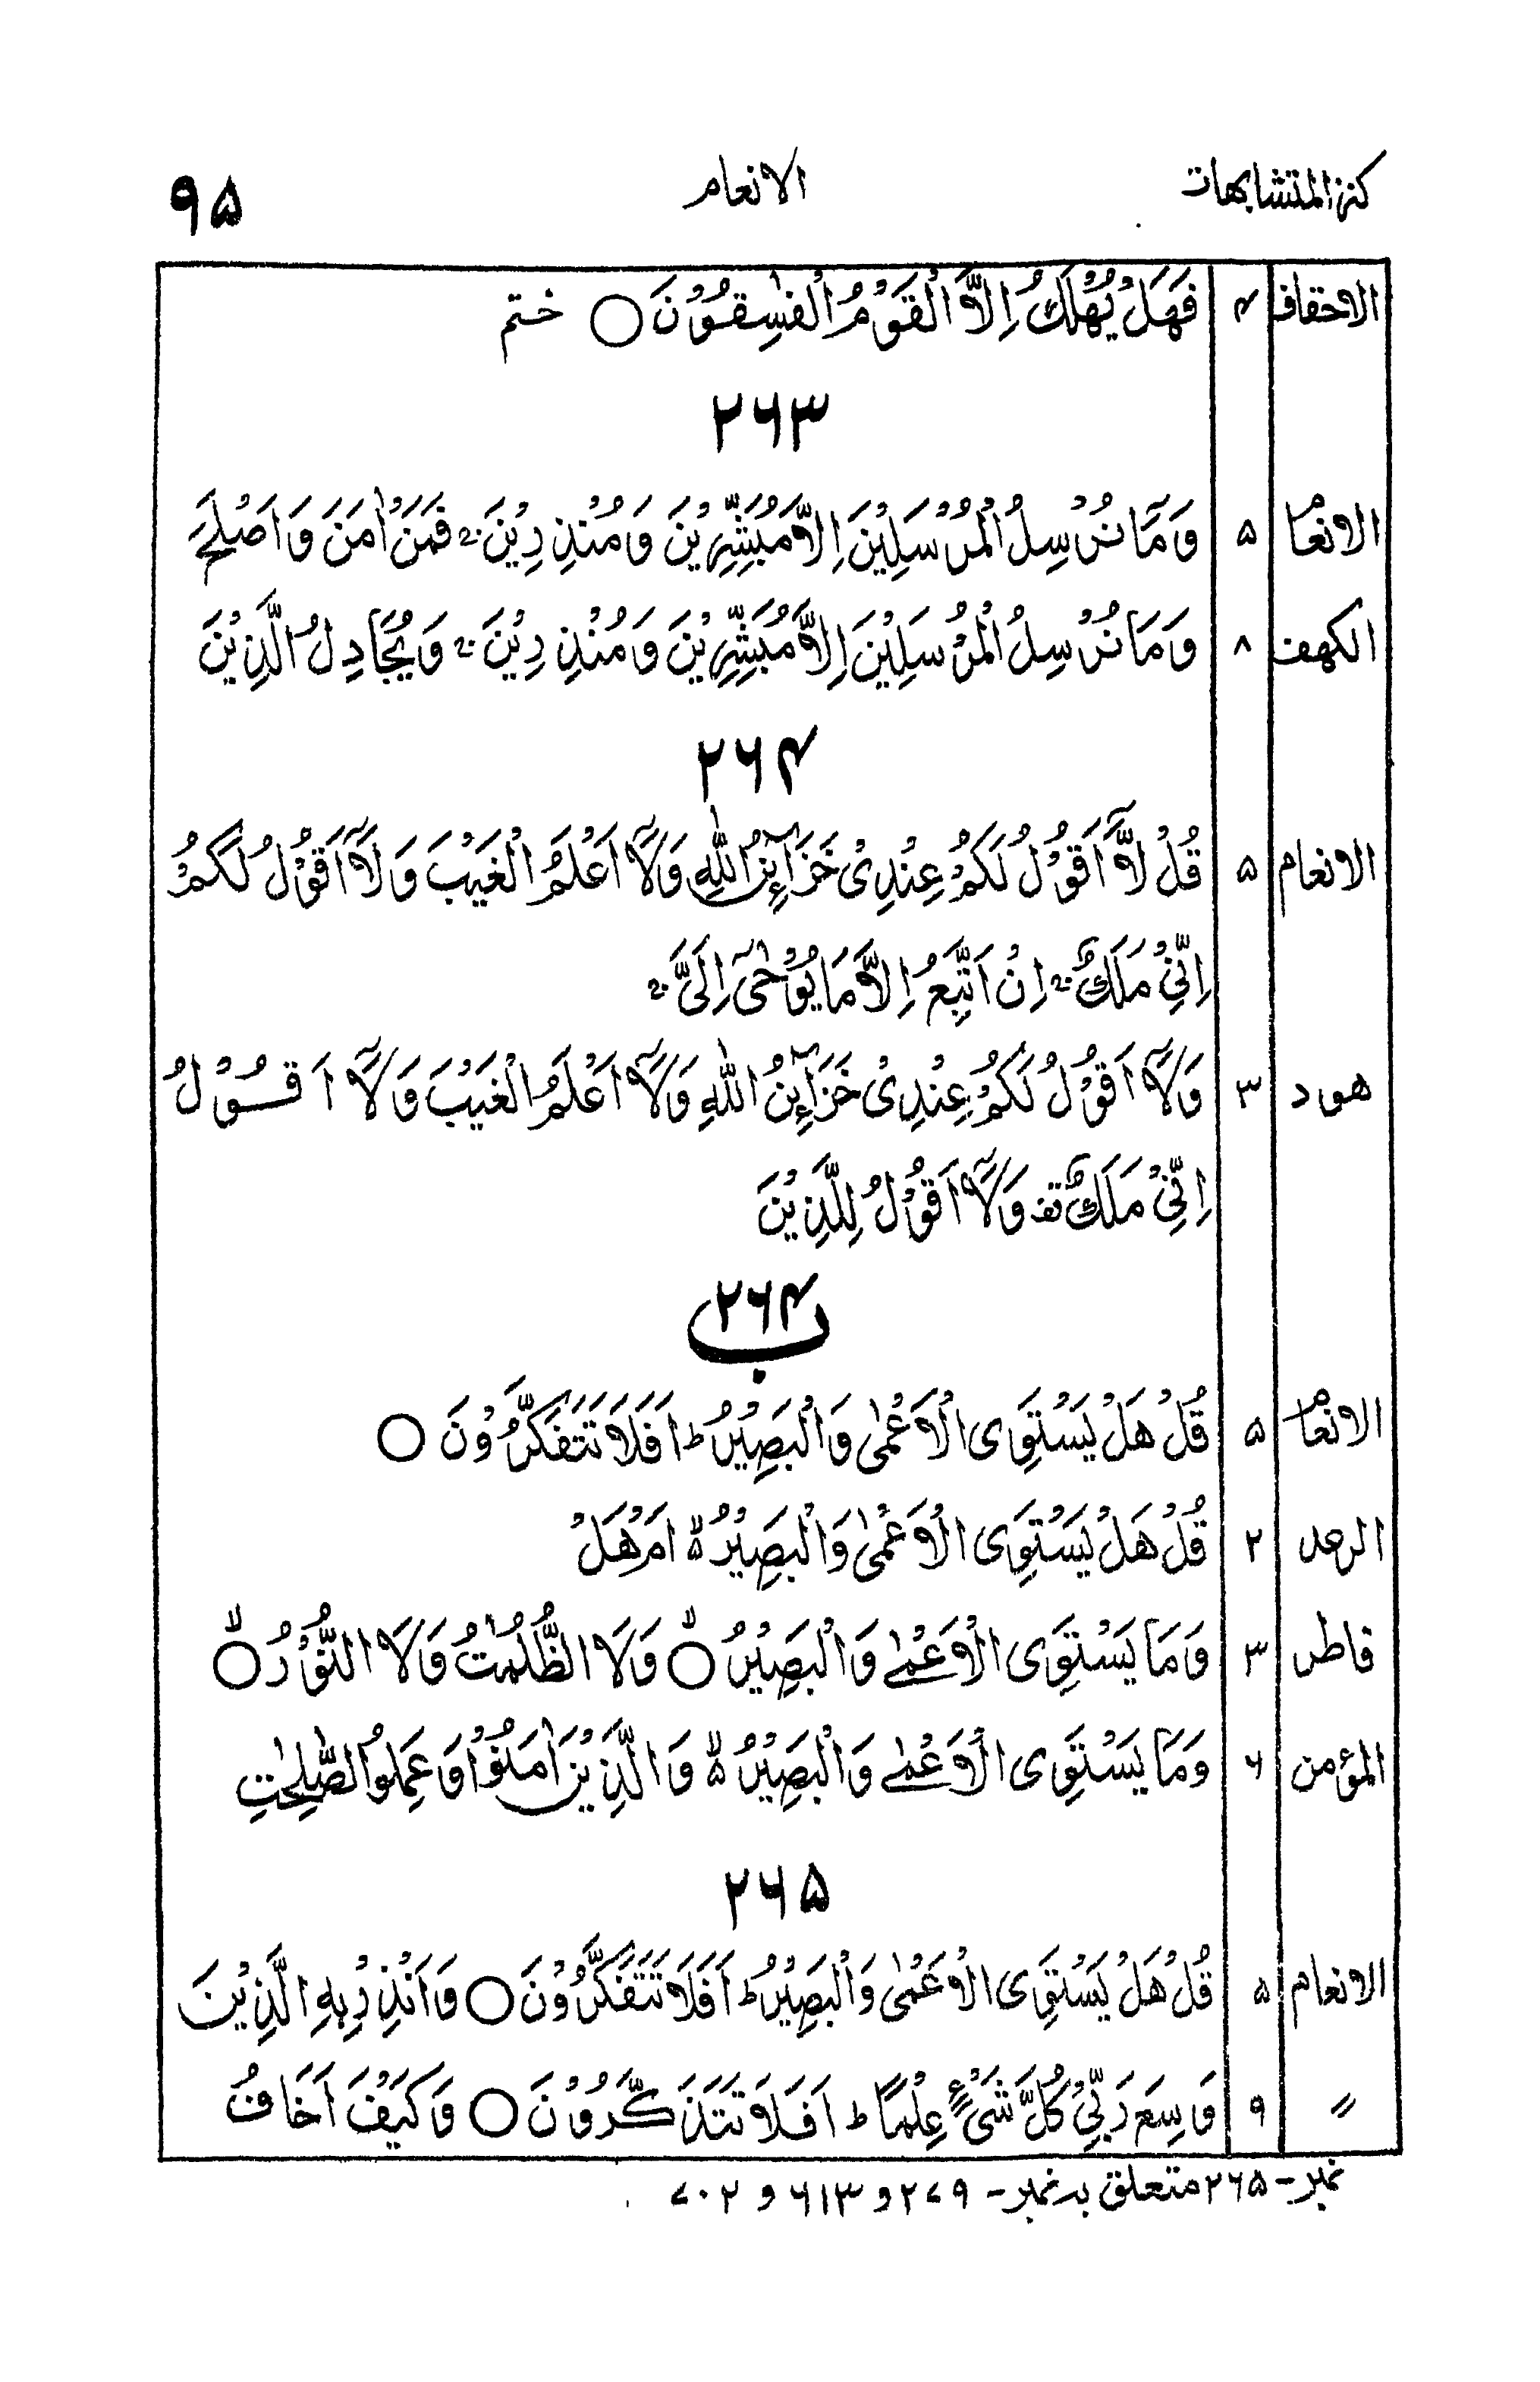 كنز المتشابهات الانعام ٩٥
الاحقاف ۴ فَهَلْ يُهْلَكُ اِلَّا الْقَوْمُ الْفٰسِقُوْنَ ○ ختم
٢٦٣
الانعام ۵ وَمَا نُرْسِلُ الْمُرْسَلِيْنَ اِلَّا مُبَشِّرِيْنَ وَمُنْذِرِيْنَ ۚ فَمَنْ اٰمَنَ وَاَصْلَحَ
الكهف ۸ وَمَا نُرْسِلُ الْمُرْسَلِيْنَ اِلَّا مُبَشِّرِيْنَ وَمُنْذِرِيْنَ ۚ وَيُجَادِلُ الَّذِيْنَ
٢٦۴
الانعام ۵ قُلْ لَّآ اَقُوْلُ لَكُمْ عِنْدِيْ خَزَآئِنُ اللّٰهِ وَلَآ اَعْلَمُ الْغَيْبَ وَلَآ اَقُوْلُ لَكُمْ
اِنِّيْ مَلَكٌ ۚ اِنْ اَتَّبِعُ اِلَّا مَا يُوْحٰٓى اِلَيَّ ۚ
هود ۳ وَلَآ اَقُوْلُ لَكُمْ عِنْدِيْ خَزَآئِنُ اللّٰهِ وَلَآ اَعْلَمُ الْغَيْبَ وَلَآ اَقُوْلُ
اِنِّيْ مَلَكٌ قف وَلَآ اَقُوْلُ لِلَّذِيْنَ
٢٦۴ ب
الانعام ۵ قُلْ هَلْ يَسْتَوِى الْاَعْمٰى وَالْبَصِيْرُ ؕ اَفَلَا تَتَفَكَّرُوْنَ ○
الرعد ۲ قُلْ هَلْ يَسْتَوِى الْاَعْمٰى وَالْبَصِيْرُ ۙ اَمْ هَلْ
فاطر ۳ وَمَا يَسْتَوِى الْاَعْمٰى وَالْبَصِيْرُ ○ۙ وَلَا الظُّلُمٰتُ وَلَا النُّوْرُ ○ۙ
المؤمن ۶ وَمَا يَسْتَوِى الْاَعْمٰى وَالْبَصِيْرُ ۙ وَالَّذِيْنَ اٰمَنُوْا وَعَمِلُوا الصّٰلِحٰتِ
٢٦۵
الانعام ۵ قُلْ هَلْ يَسْتَوِى الْاَعْمٰى وَالْبَصِيْرُ ؕ اَفَلَا تَتَفَكَّرُوْنَ ○ وَاَنْذِرْ بِهِ الَّذِيْنَ
〃 ۹ وَسِعَ رَبِّيْ كُلَّ شَيْءٍ عِلْمًا ؕ اَفَلَا تَتَذَكَّرُوْنَ ○ وَكَيْفَ اَخَافُ
نمبر - ۲۶۵ متعلق بہ نمبر - ۲۷۹ و ۶۱۳ و ۷۰۲